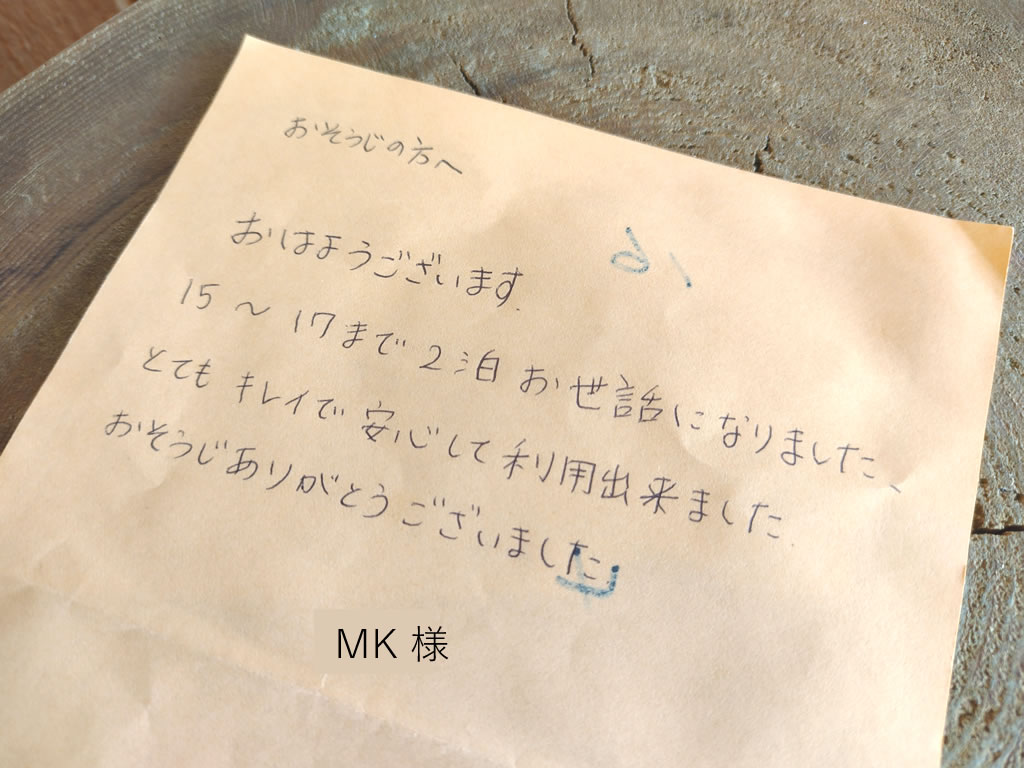 おそうじの方へ
おはようございます.
15〜17まで2泊お世話になりました、
とてもキレイで安心して利用出来ました.
おそうじありがとうございました
MK 様